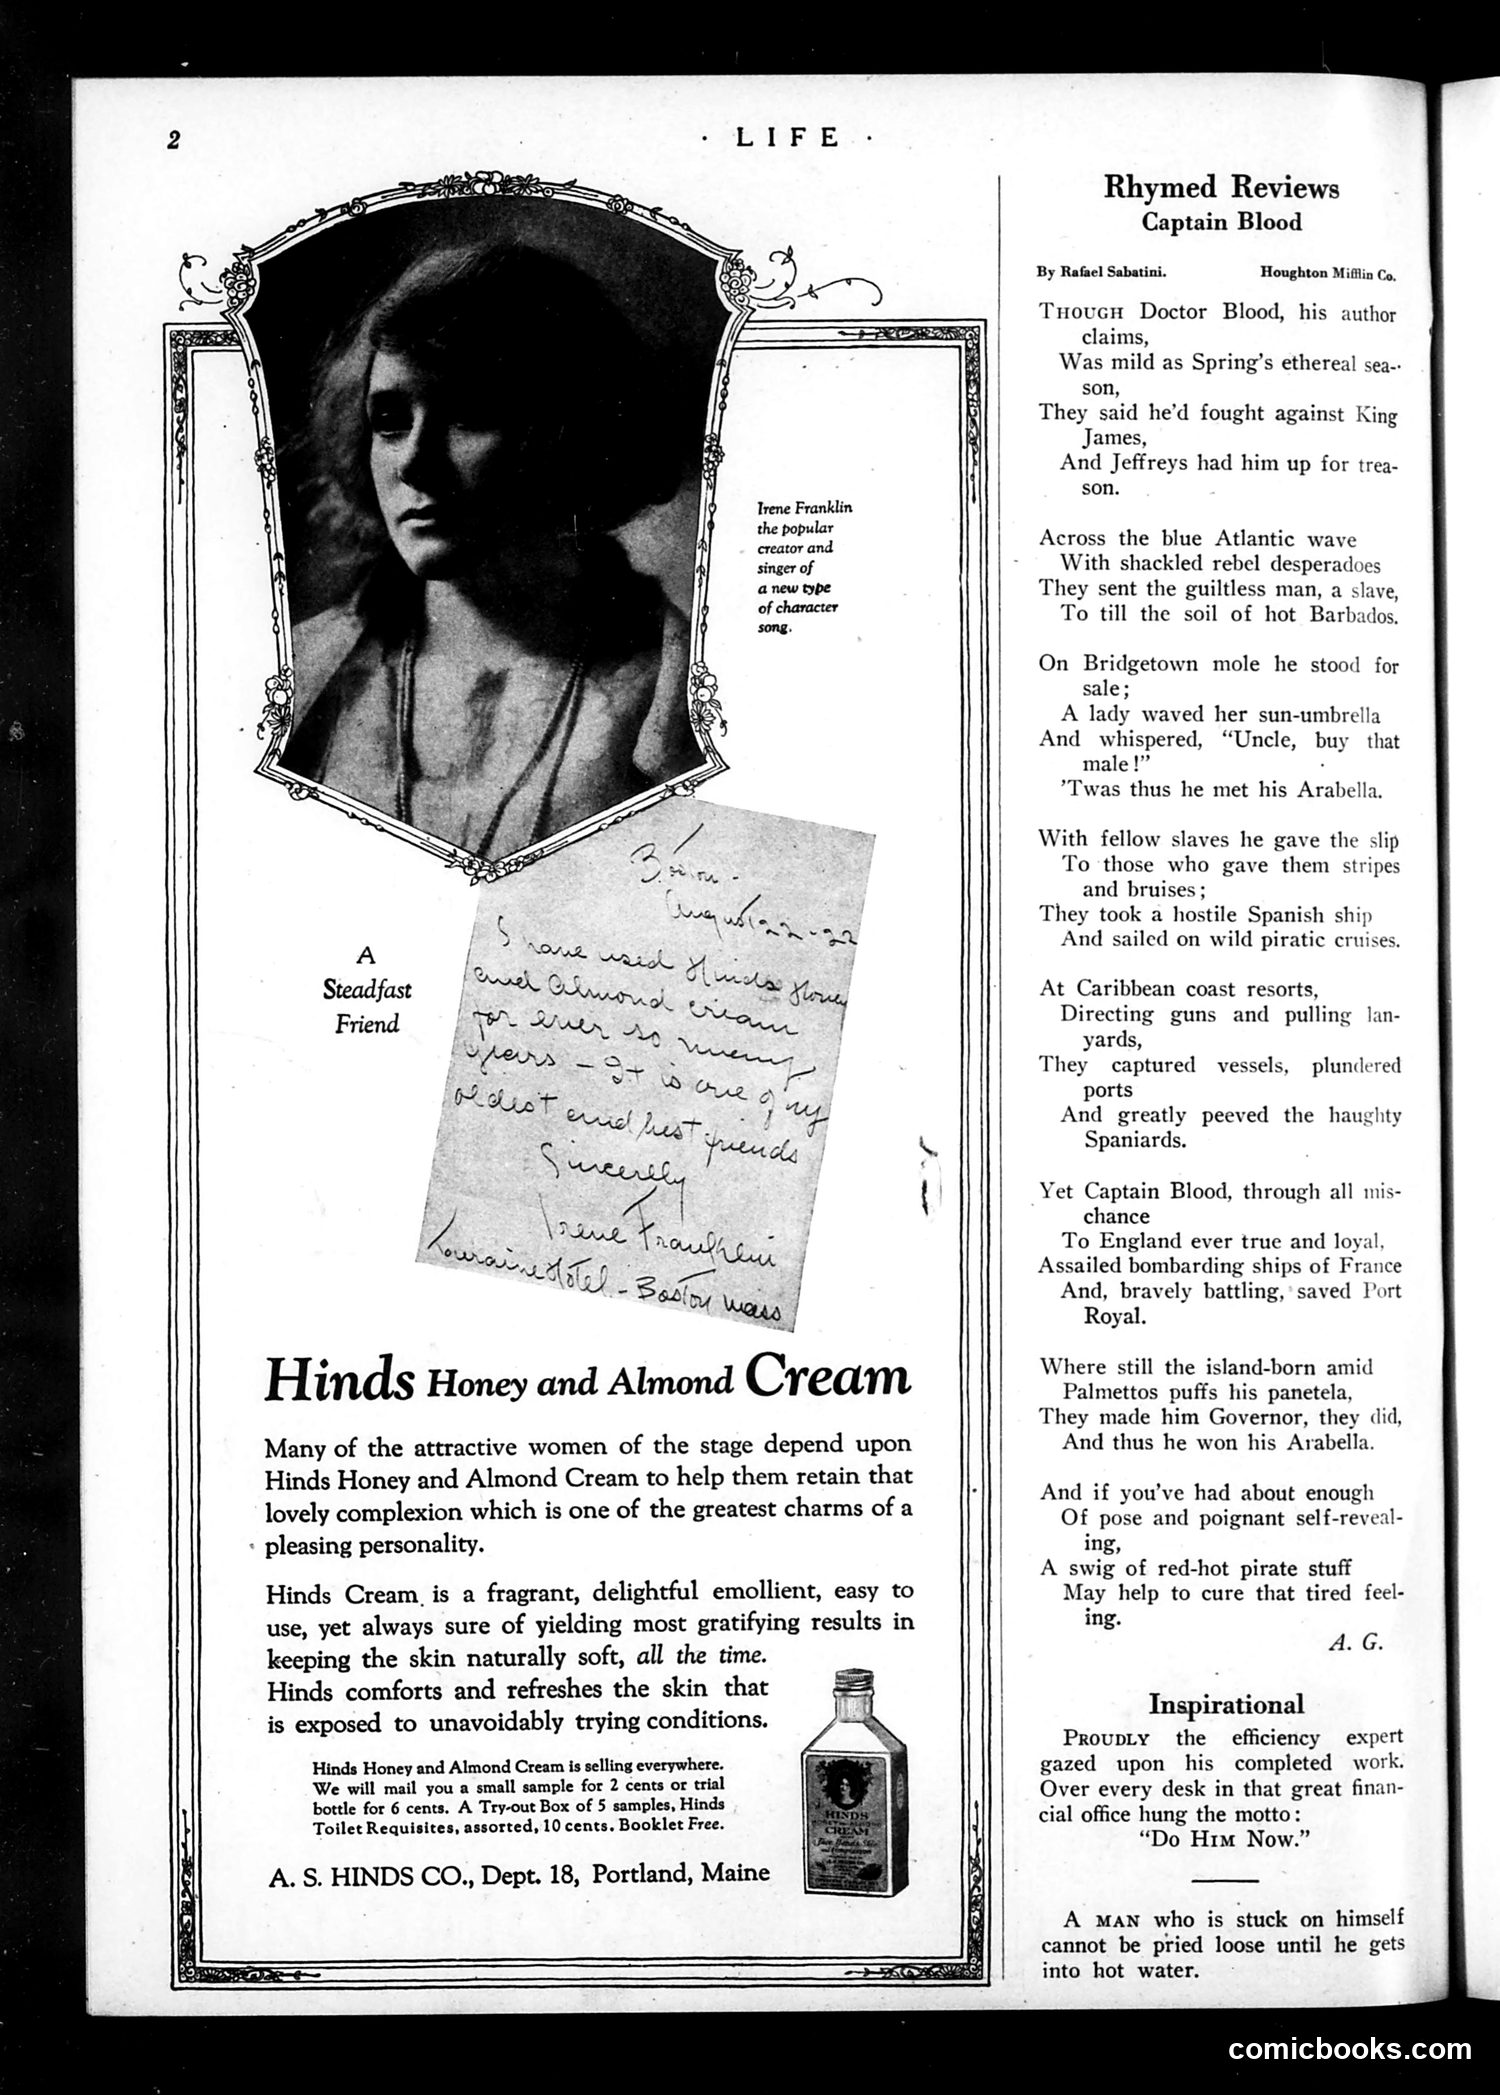 2
· LIFE ·
Irene Franklin
the popular
creator and
singer of
a new type
of character
song.
A
Steadfast
Friend
Boston -
August 22 - 22
I have used Hinds Honey
and Almond cream
for ever so many
years - It is one of my
oldest and best friends
Sincerely
Irene Franklin
Touraine Hotel - Boston Mass
Hinds Honey and Almond Cream
Many of the attractive women of the stage depend upon
Hinds Honey and Almond Cream to help them retain that
lovely complexion which is one of the greatest charms of a
pleasing personality.
Hinds Cream is a fragrant, delightful emollient, easy to
use, yet always sure of yielding most gratifying results in
keeping the skin naturally soft, all the time.
Hinds comforts and refreshes the skin that
is exposed to unavoidably trying conditions.
Hinds Honey and Almond Cream is selling everywhere.
We will mail you a small sample for 2 cents or trial
bottle for 6 cents. A Try-out Box of 5 samples, Hinds
Toilet Requisites, assorted, 10 cents. Booklet Free.
A. S. HINDS CO., Dept. 18, Portland, Maine
HINDS
CREAM
Rhymed Reviews
Captain Blood
By Rafael Sabatini. Houghton Mifflin Co.
THOUGH Doctor Blood, his author
claims,
Was mild as Spring's ethereal sea-
son,
They said he'd fought against King
James,
And Jeffreys had him up for trea-
son.
Across the blue Atlantic wave
With shackled rebel desperadoes
They sent the guiltless man, a slave,
To till the soil of hot Barbados.
On Bridgetown mole he stood for
sale;
A lady waved her sun-umbrella
And whispered, "Uncle, buy that
male!"
'Twas thus he met his Arabella.
With fellow slaves he gave the slip
To those who gave them stripes
and bruises;
They took a hostile Spanish ship
And sailed on wild piratic cruises.
At Caribbean coast resorts,
Directing guns and pulling lan-
yards,
They captured vessels, plundered
ports
And greatly peeved the haughty
Spaniards.
Yet Captain Blood, through all mis-
chance
To England ever true and loyal,
Assailed bombarding ships of France
And, bravely battling, saved Port
Royal.
Where still the island-born amid
Palmettos puffs his panetela,
They made him Governor, they did,
And thus he won his Arabella.
And if you've had about enough
Of pose and poignant self-reveal-
ing,
A swig of red-hot pirate stuff
May help to cure that tired feel-
ing.
A. G.
Inspirational
PROUDLY the efficiency expert
gazed upon his completed work.
Over every desk in that great finan-
cial office hung the motto:
"DO HIM NOW."
A MAN who is stuck on himself
cannot be pried loose until he gets
into hot water.
comicbooks.com